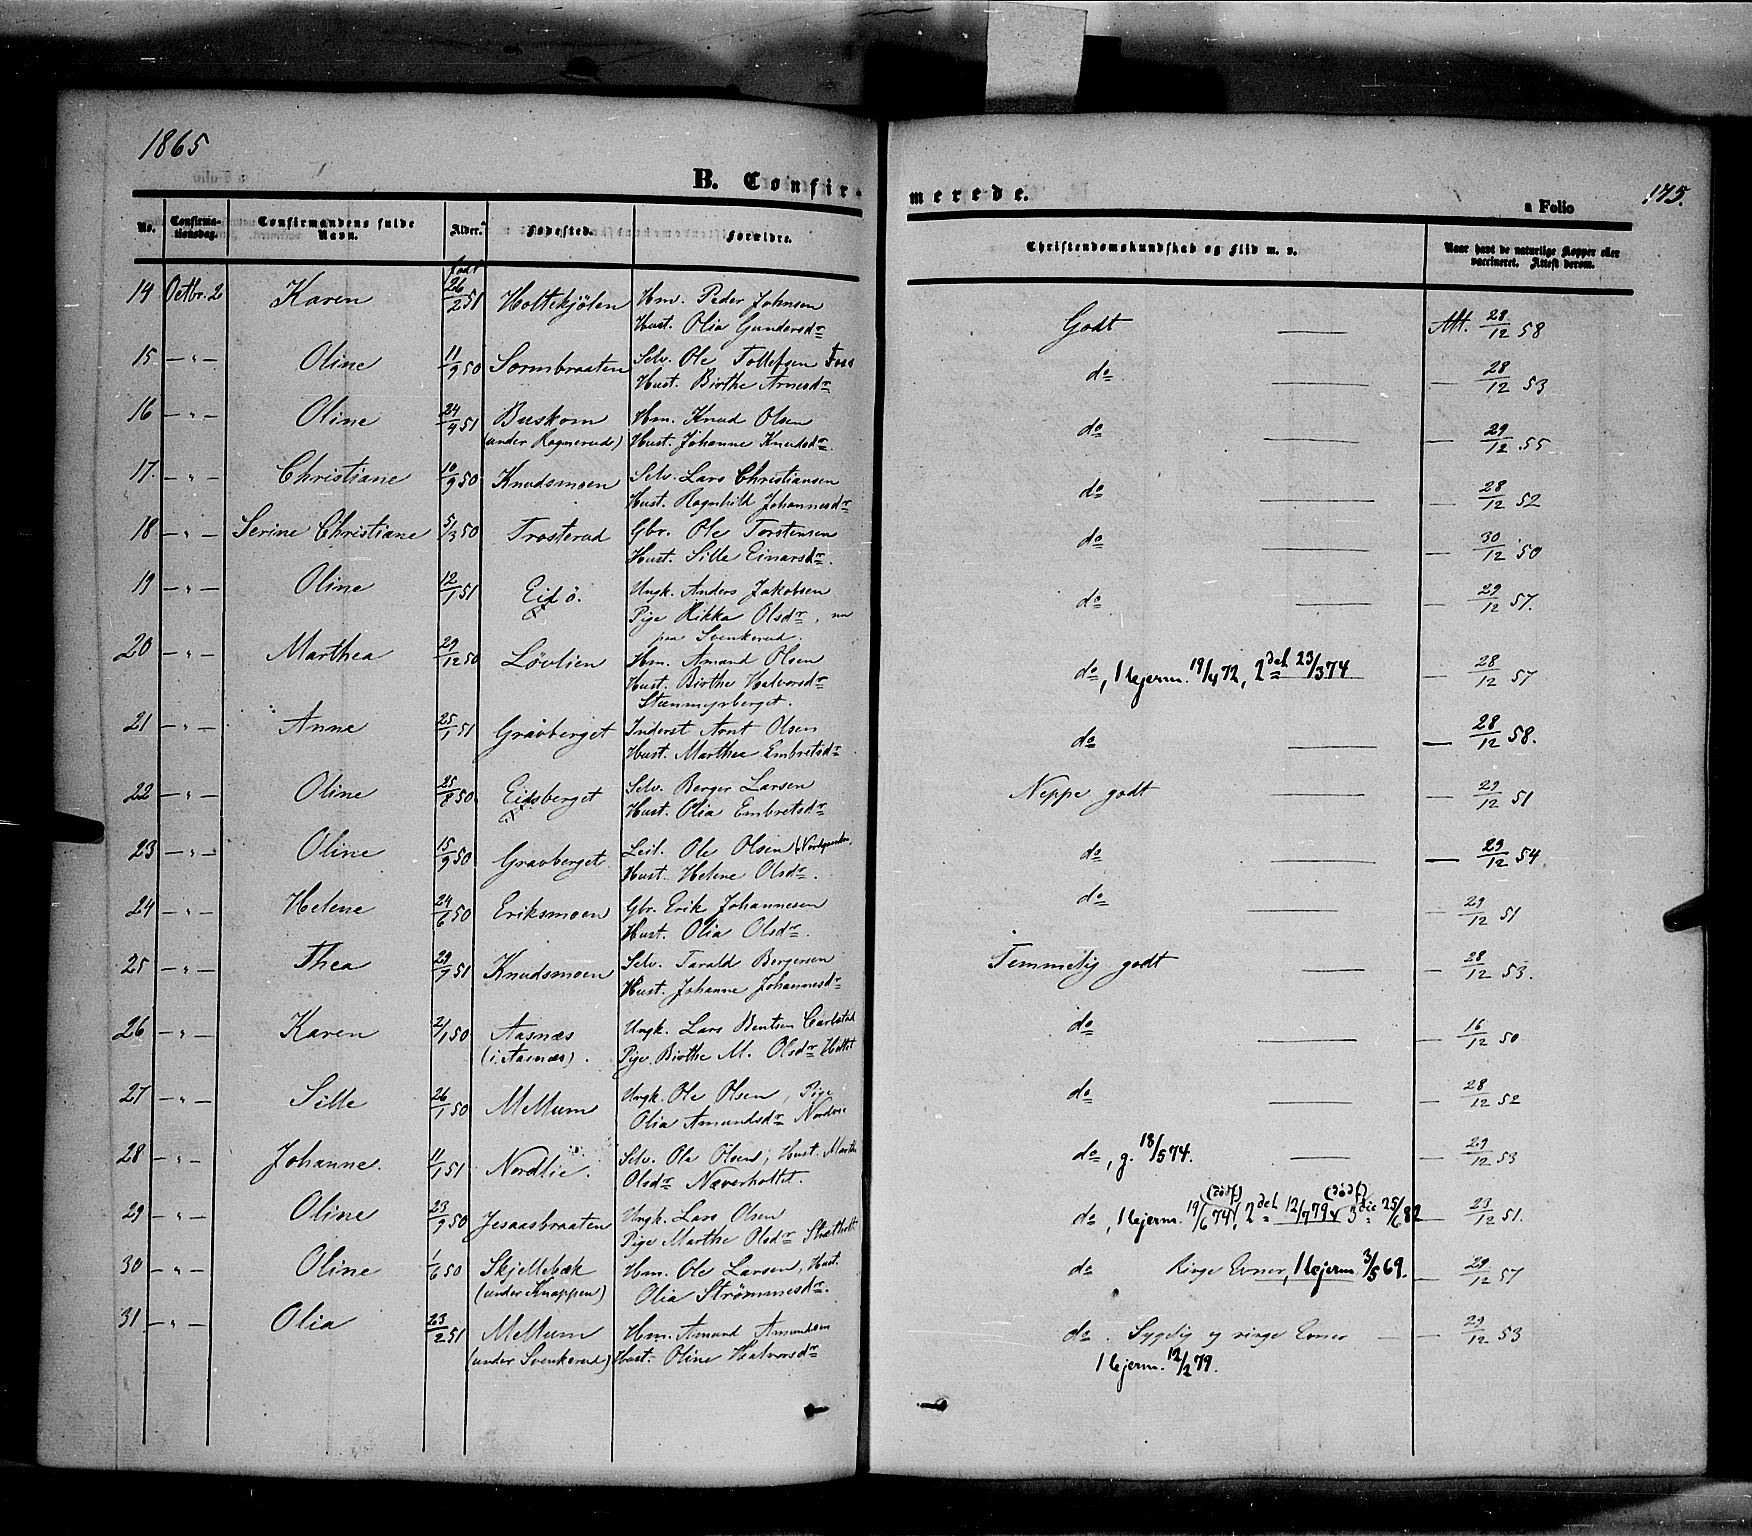 1865
B. Confirmerede.
a Folio 175.
No. Confirmationsdag. Confirmandens fulde Navn. Alder. Fødested. Forældre. Christendomskundskab og Flid m. v. Naar havt de naturlige Kopper eller vaccineret. Attest derom.
født
14 Octbr. 2 Karen 26/2 51 Holtekjølen Hm. Peder Johnsen Godt — Att. 28/12 58
Hust. Olia Gundersdr
15 — " — Oline 11/9 50 Sormbraaten Selv. Ole Tollefsen Foss do — — 28/12 53
Hust. Birthe Arnesdr
16 — " — Oline 24/4 51 Buskom Hm. Knud Olsen do — — 29/12 55
(under Rognerud) Hust. Johanne Knudsdr.
17. — " — Christiane 10/9 50 Knudsmoen Selv. Lars Christiansen do — — 28/12 52
Hust. Ragnhild Johannesdr
18 — " — Serine Christiane 5/3 50 Trosterud Gbr. Ole Torstensen do — — 30/12 50
Hust. Sille Einarsdr.
19 — " — Oline 12/1 51 Eid ö. Ungk. Anders Jakobsen do — — 29/12 57.
Pige Rikka Olsdr, nu
paa Svenkerud.
20 — " — Marthea 29/12 50 Lövlien Hm. Amund Olsen do, 1 lejerm. 19/4 72, 2del 23/3 74 — 28/12 57
Hust. Birthe Halvorsdr
Stenmyrberget.
21 — " — Anne 25/1 51 Gravberget Inderst Arnt Olsen do — — 28/12 58.
Hust. Marthea Embretsdr
22 — " — Oline 25/8 50 Eidsberget Selv. Berger Larsen Neppe godt — — 29/12 51
Hust. Olia Embretsdr
23 — " — Oline 15/9 50 Gravberget Leil. Ole Olsen do — — 29/12 54
Hust. Helene Olsdr.
24 — " — Helene 24/6 50 Eriksmoen Gbr. Erik Johannesen do — — 29/12 51
Hust. Olia Olsdr.
25 — " — Thea 29/9 51 Knudsmoen Selv. Tarald Bergersen Temmelig godt — — 28/12 53.
Hust. Johanne Johannesdr
26 — " — Karen 2/1 50 Aasnæs Ungk. Lars Bentsen Carlstad do — — 16/12 50
(i Aasnæs). Pige Birthe M. Olsdr Holtet
27 — " — Sille 26/1 50 Mellum Ungk. Ole Olsen, Pige do — — 28/12 52
Olia Amundsdr
28 — " — Johanne. 11/1 51 Nordlie. Selv. Ole Olsen, Hust. Marthe do, g. 18/5 74. — — 29/12 53
Olsdr Næverholtet.
29 — " — Oline 23/9 50 Jesaasbraaten Ungk. Lars Olsen do, 1 lejerm. 19/6 74 (dödf), 2del 12/7 79 (dödf) 3die 25/6 82 — 23/12 51.
Pige Marthe Olsdr
30 — " — Oline 1/6 50 Skjellebæk Hm. Ole Larsen, Hust. do Ringe Evner, 1 lejerm 3/5 69. — 29/12 57
(under Knappen) Olia Strömmesdr.
31 — " — Olia 23/2 51 Mellum Hm. Amund Amundsen do. Sygelig og ringe Evner — — 29/12 53
(under Svenkerud) Hust. Oline Halvorsdr 1 lejerm. 12/2 79.